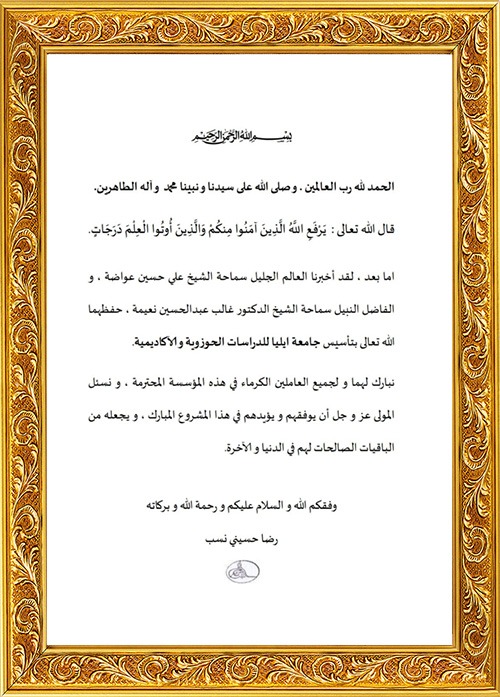 بسم الله الرحمن الرحيم
الحمد لله رب العالمين ، وصلى الله على سيدنا ونبينا محمد و آله الطاهرين.
قال الله تعالى : يَرْفَعِ اللَّهُ الَّذِينَ آمَنُوا مِنكُمْ وَالَّذِينَ أُوتُوا الْعِلْمَ دَرَجَاتٍ.
اما بعد ، لقد أخبرنا العالم الجليل سماحة الشيخ علي حسين عواضة ، و
الفاضل النبيل سماحة الشيخ الدكتور غالب عبدالحسين نعيمة ، حفظهما
الله تعالى بتأسيس جامعة ايليا للدراسات الحوزوية والآكاديمية.
نبارك لهما و لجميع العاملين الكرماء في هذه المؤسسة المحترمة ، و نسئل
المولى عز و جل أن يوفقهم و يؤيدهم في هذا المشروع المبارك ، و يجعله من
الباقيات الصالحات لهم في الدنيا و الآخرة.
وفقكم الله و السلام عليكم و رحمة الله و بركاته
رضا حسيني نسب